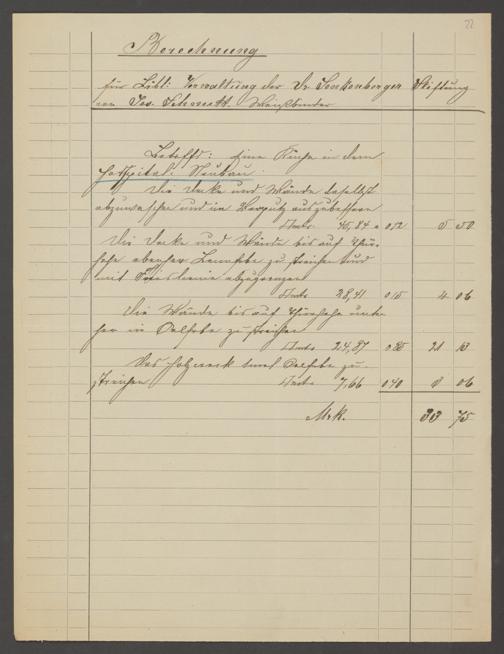 22
Berechnung
für Löbl: Verwaltung der Dr Senkenberger Stiftung
von Jos. Schmitt. Weißbinder
Betreffs: Eine Küche in dem
Hospital: Neubau.
Die Decke und Wände daselbst
abzuwaschen und im Verputz auszubessern
45,84 a 0 12 5 50
Die Decke und Wände bis auf Thür-
höhe Leimfbe zu streichen und
mit abzugrenzen
28,41 0 15 4 06
Die Wände bis auf Thürhöhe unten
her in Oelfbe zu streichen
24,87 0 85 21 13
Das Holzwerk 1mal Oelfbe zu
streichen 7,66 0 40 3 06
Mrk. 33 75